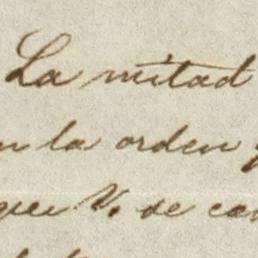 La mitad
la orden
que V. se